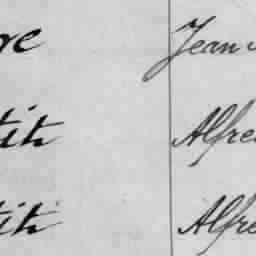 re Jean
tit Alfre
tit Alfre